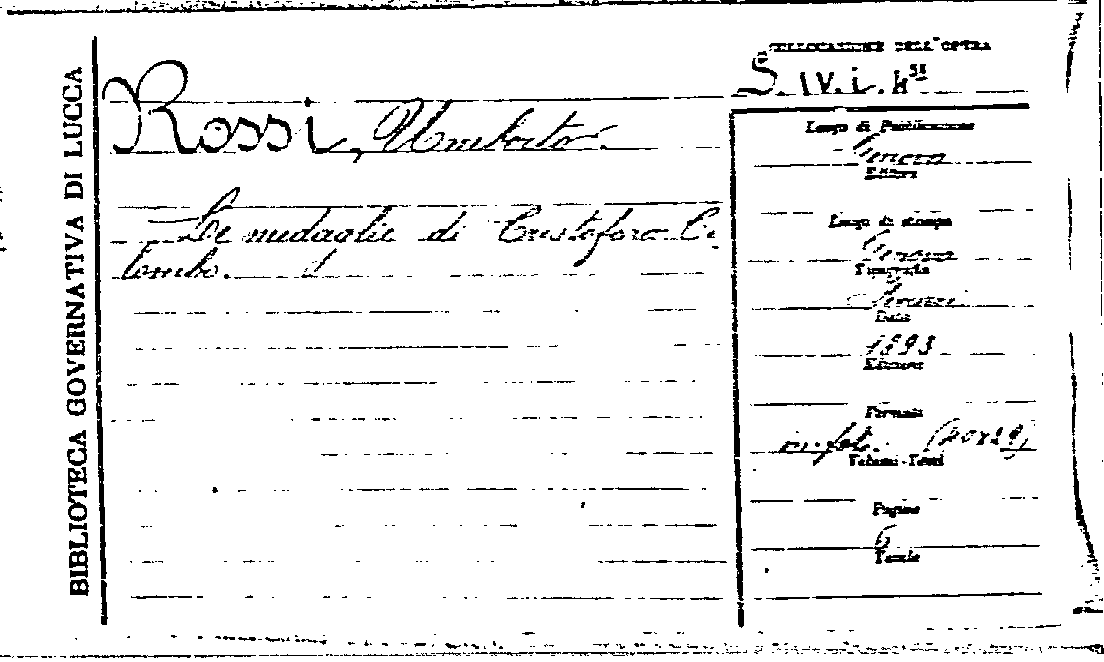 BIBLIOTECA GOVERNATIVA DI LUCCA
Rossi, Umberto.
Le medaglie di Cristoforo Co
lombo.
COLLOCAZIONE DELL'OPERA
S. IV. i. 4
Luogo di Pubblicazione
Genova
Editore
Luogo di stampa
Genova
Tipografia
Data
1893
Edizione
Formato
in-fol. (40x29)
Volumi-Tomi
Pagine
6
Tavole